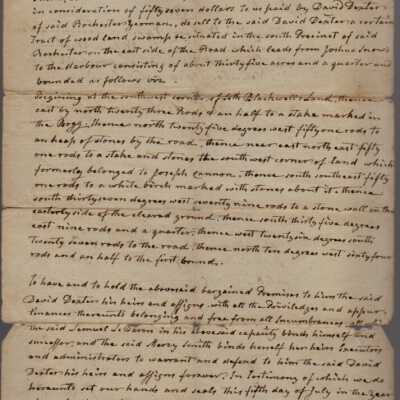 in consideration of fifty seven dollars to us paid by David Dexter
of said Rochester Yeoman, do sell to the said David Dexter a certain
Tract of wood land swamp situated in the south Precinct of said
Rochester on the east side of the Road which leads from Joshua Snows
to the Harbour consisting of about thirty five acres and a quarter and
bounded as follows viz
Begining at the southwest corner of Seth Blackwells Land, thence
east by north twenty three Rods & an half to a stake marked in
the Bogg, thence north twenty five degrees west fifty one rods to
an heap of stones by the road, thence near east north east fifty
one rods to a stake and stones the south west corner of land which
formerly belonged to Joseph Cannon, thence south southeast fifty
one rods to a white birch marked with stones about it, thence
south thirty seven degrees west seventy nine rods to a stone wall on the
easterly side of the cleared ground, thence south thirty five degrees
east nine rods and a quarter, thence west twenty six degrees south
twenty seven rods to the road, thence north ten degrees west sixty four
rods and an half to the first bound.
To have and to hold the abovesaid bargained Premises to him the said
David Dexter his heirs and assigns with all the Priviledges and appur-
tinances thereunto belonging and free from all Incumbrances
the said Samuel in his abovesaid capacity binds himself and
successor, and the said Mercy Smith binds herself her heirs Executors
and administrators to warrant and defend to him the said David
Dexter his heirs and assigns forever. In testimony of which we do
hereunto set our hands and seals this fifth day of July in the year